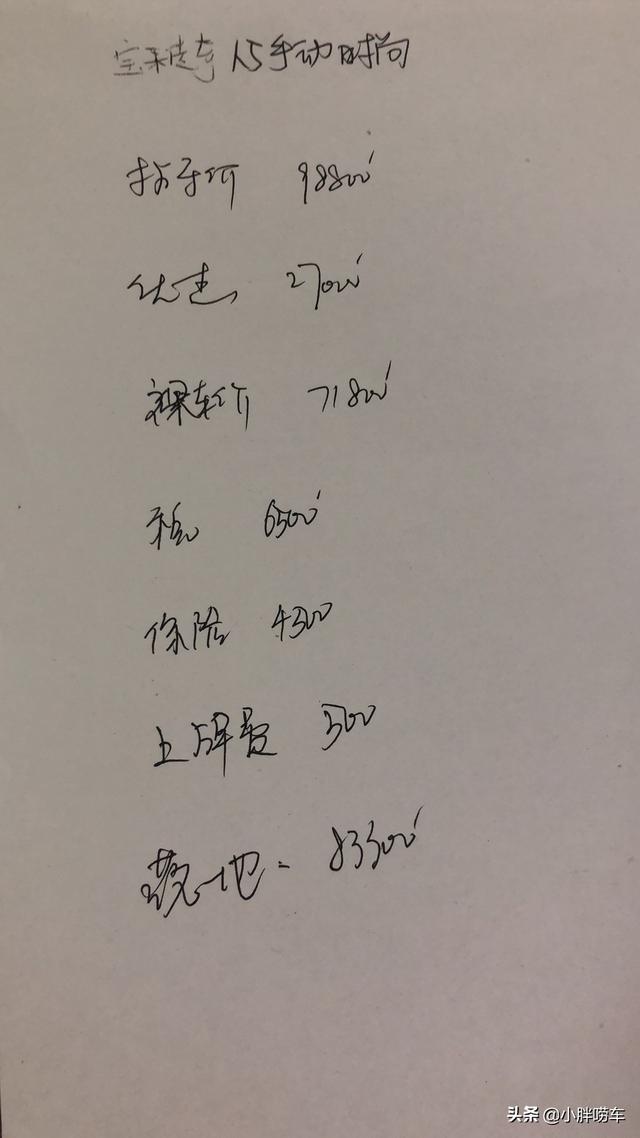 宝来传奇 1.5手动时尚
指导价 98800
优惠 27000
裸车价 71800
税 6500
保险 4500
上牌费 500
落地 - 83300
头条 @小胖唠车